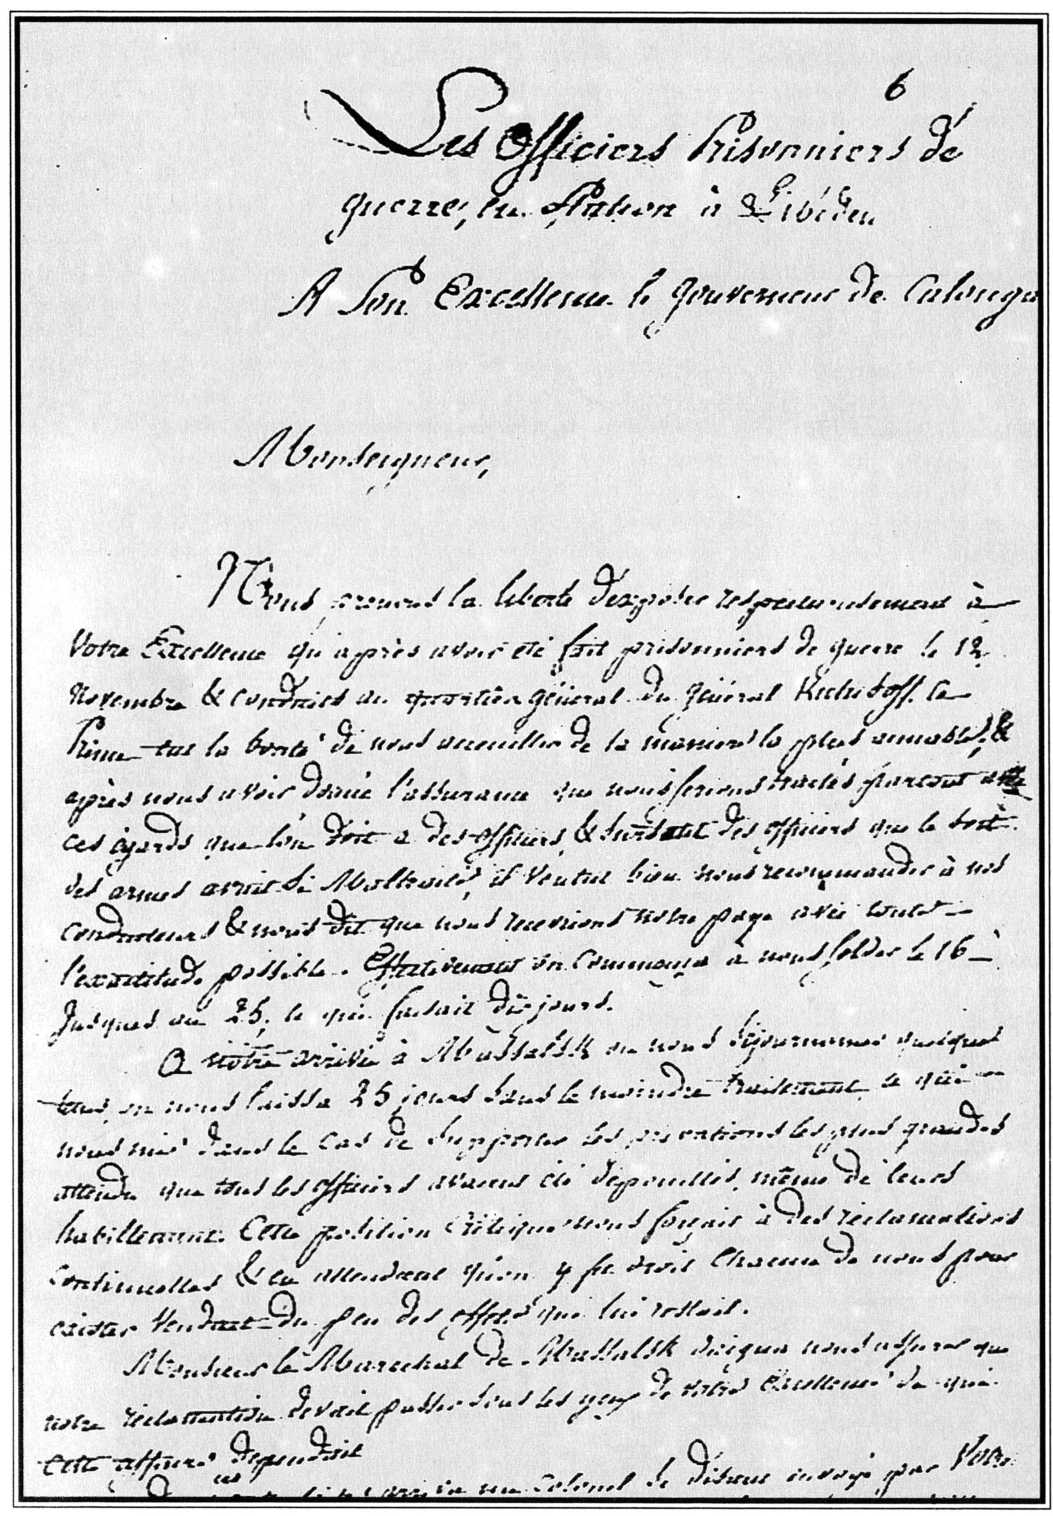 6
Les Officiers Prisonniers de
guerre, en Station à
A Son Excellence le gouverneur de Calouga
Monseigneur,
Nous prenons la liberté d'exposer respectueusement à
Votre Excellence qu'après avoir été fait prisonniers de guerre le 12
Novembre & conduits au quartier général du général Kutusoff. Ce
Prince eut la bonté de nous accueillir de la maniere la plus aimable, &
après nous avoir donné l'assurance que nous serions traités partout avec
ces égards que l'on doit a des officiers, & surtout des officiers que le sort
des armes avait si Maltraités, il voulut bien nous recommander à nos
conducteurs & nous dit que nous recevrions notre paye avec toute
l'exactitude possible. Effectivement on Commença à nous solder le 16
Jusques au 25, ce qui faisait dix jours.
A notre arrivée à Massalsk ou nous séjournames quelque
tems, on nous laissa 25 jours sans le moindre traitement, ce qui
nous mis dans le cas de supporter les privations les plus grandes
attendu que tous les officiers avaient été depouillés, même de leurs
habillement. Cette position Critique nous forçait à des réclamations
continuelles & en attendant qu'on y fit droit Chacun de nous pour
exister Vendait du peu des effets qui lui restait.
Monsieur le Marechal de Massalsk daigna nous assurer que
notre réclamation devait passer sous les yeux de votre Excellence de qui
cette affaire dependait
arriva un Colonel de envoyé par Votre